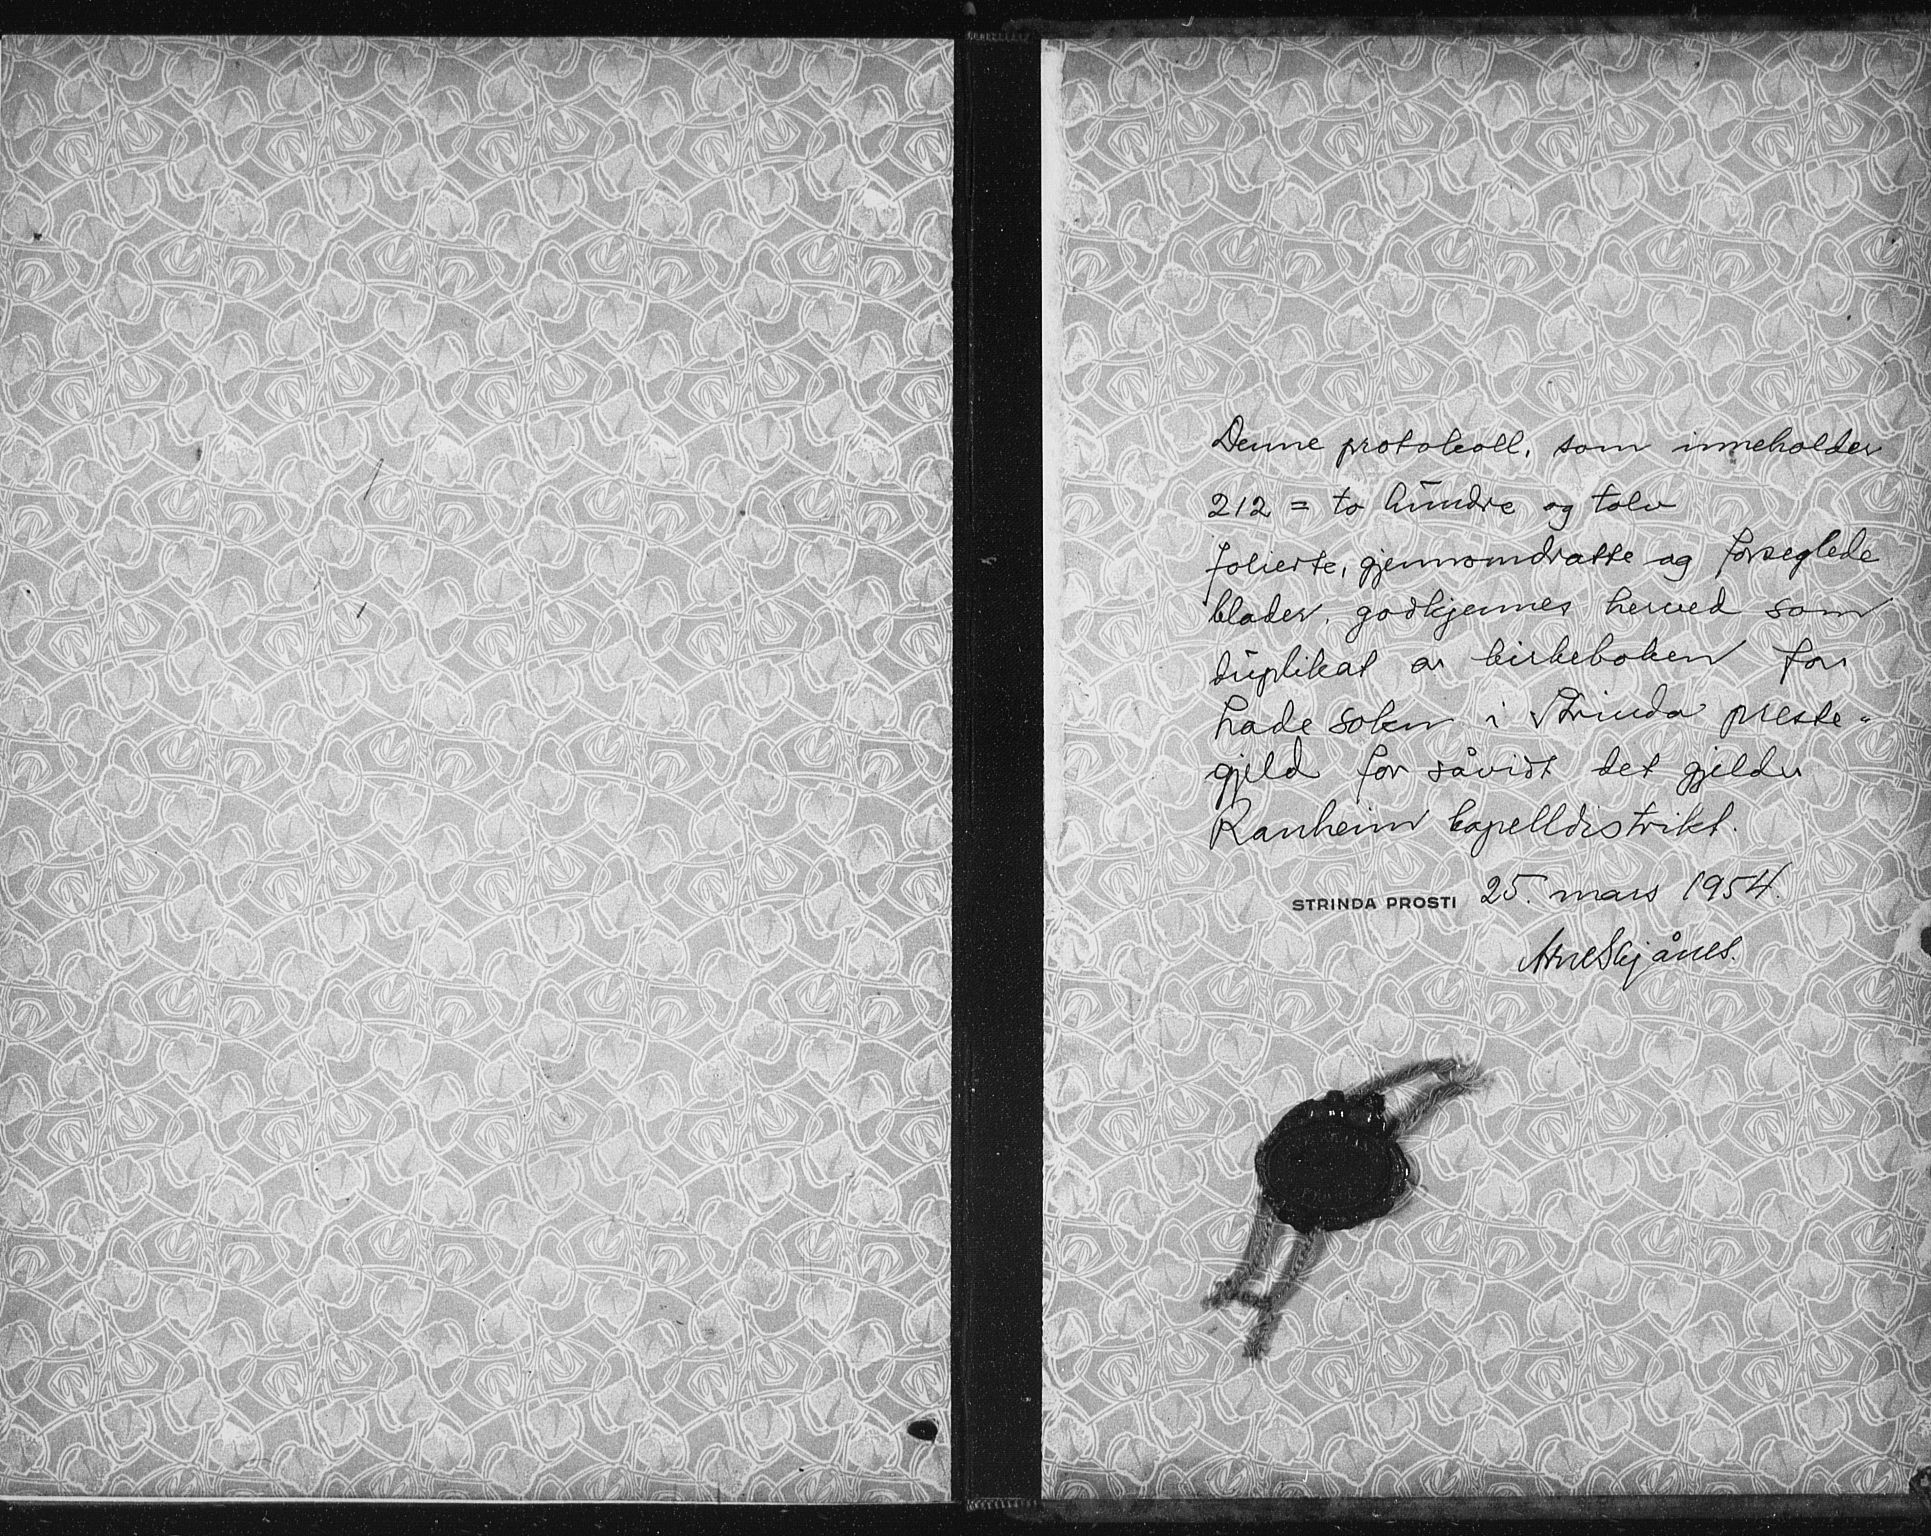 Denne protokoll, som inneholder
212 = to hundre og tolv
folierte, gjennomdratte og forseglede
blader, godkjennes herved som
duplikat av kirkeboken for
Lade sokn i Strinda preste-
gjeld for såvidt det gjelder
Ranheim kapelldistrikt.
STRINDA PROSTI 25. mars 1954.
Arne Skjånes.